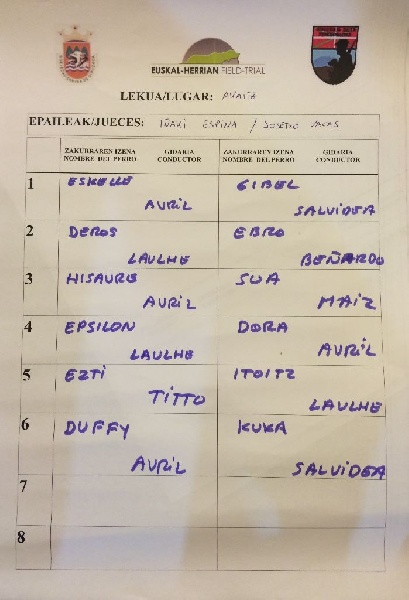 EUSKAL-HERRIAN FIELD-TRIAL
LEKUA/LUGAR:
EPAILEAK/JUECES: IÑAKI ESPINA /
ZAKURRAREN IZENA GIDARIA ZAKURRAREN IZENA GIDARIA
NOMBRE DEL PERRO CONDUCTOR NOMBRE DEL PERRO CONDUCTOR
1 ESKELLE CIBEL
AVRIL SALVIDEA
2 DEROS EBRO
LAULHE BEÑARDO
3 HISAURE SUA
AVRIL MAIZ
4 EPSILON DORA
LAULHE AVRIL
5 EZTI ITOITZ
TITTO LAULHE
6 DUFFY KUKA
AVRIL SALVIDEA
7
8